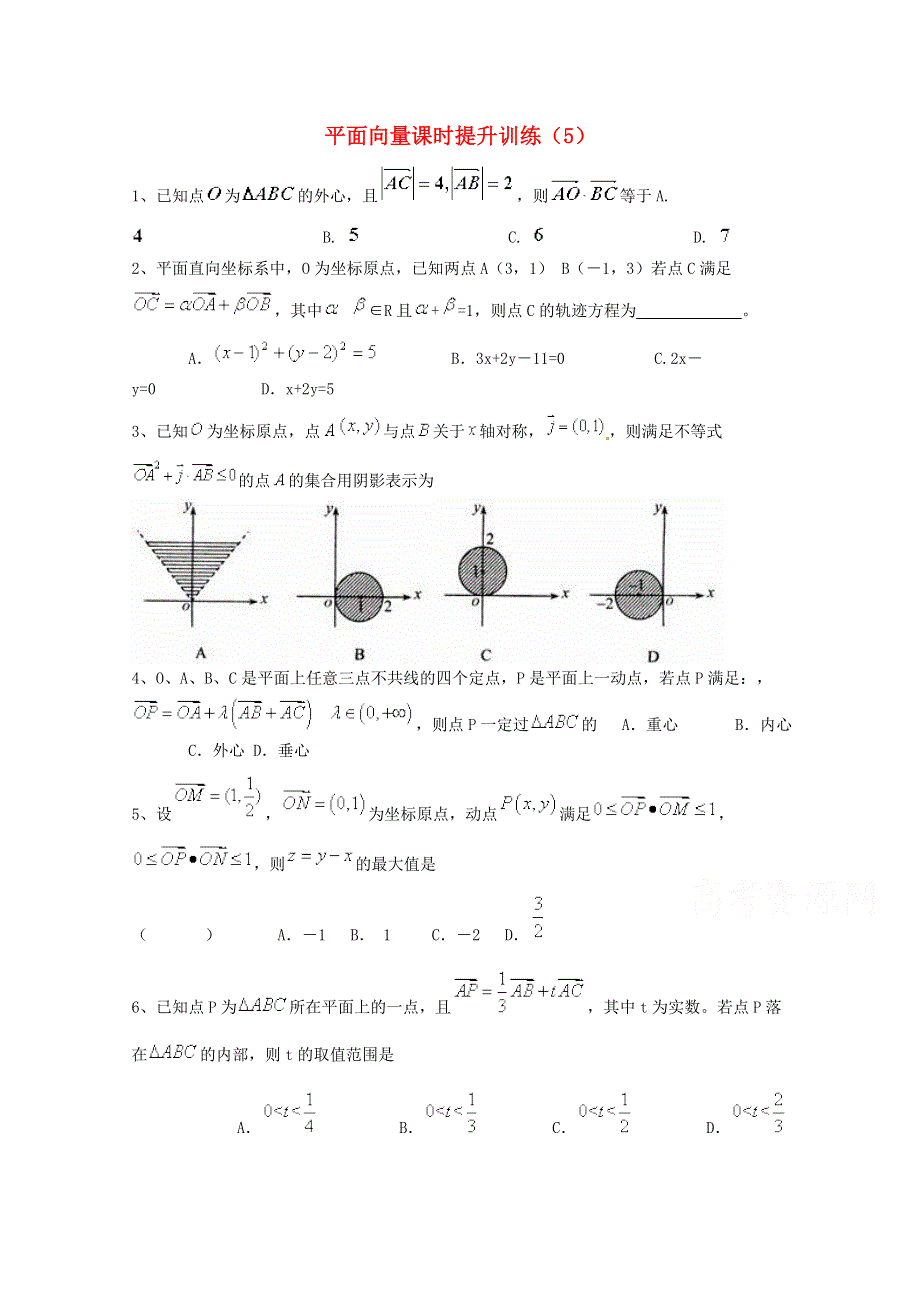 平面向量课时提升训练（5）
1、已知点O为ΔABC的外心，且|AC|=4,|AB|=2，则AO·BC等于A.
4 B. 5 C. 6 D. 7
2、平面直向坐标系中，O为坐标原点，已知两点A（3，1） B（－1，3）若点C满足
OC=αOA+βOB，其中α β∈R且α+β=1，则点C的轨迹方程为____________。
A．(x-1)²+(y-2)²=5 B．3x+2y－11=0 C.2x－
y=0 D．x+2y=5
3、已知O为坐标原点，点A(x,y)与点B关于x轴对称，j=(0,1)，则满足不等式
OA²+j·AB≤0的点A的集合用阴影表示为
y o x A
y o 1 2 x B
y 2 1 o x C
y -1 -2 o x D
4、O、A、B、C是平面上任意三点不共线的四个定点，P是平面上一动点，若点P满足：，
OP=OA+λ(AB+AC) λ∈(0,+∞)，则点P一定过ΔABC的 A．重心 B．内心
C．外心 D．垂心
5、设OM=(1,1/2)，ON=(0,1)为坐标原点，动点P(x,y)满足0≤OP•OM≤1，
0≤OP•ON≤1，则z=y-x的最大值是
（ ） A．－1 B． 1 C．－2 D．3/2
高考资源网
6、已知点P为ΔABC所在平面上的一点，且AP=1/3AB+tAC，其中t为实数。若点P落
在ΔABC的内部，则t的取值范围是
A．0<t<1/4 B．0<t<1/3 C．0<t<1/2 D．0<t<2/3